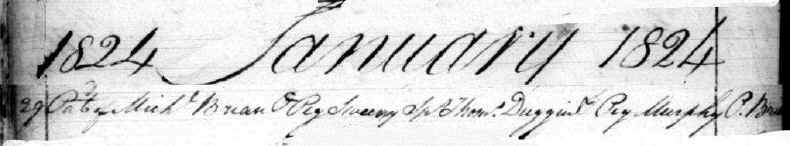 1824 January 1824
29 Mich.l Brian & Peg Sweeny Sp.s Thom.s Duggin & Peg Murphy P.